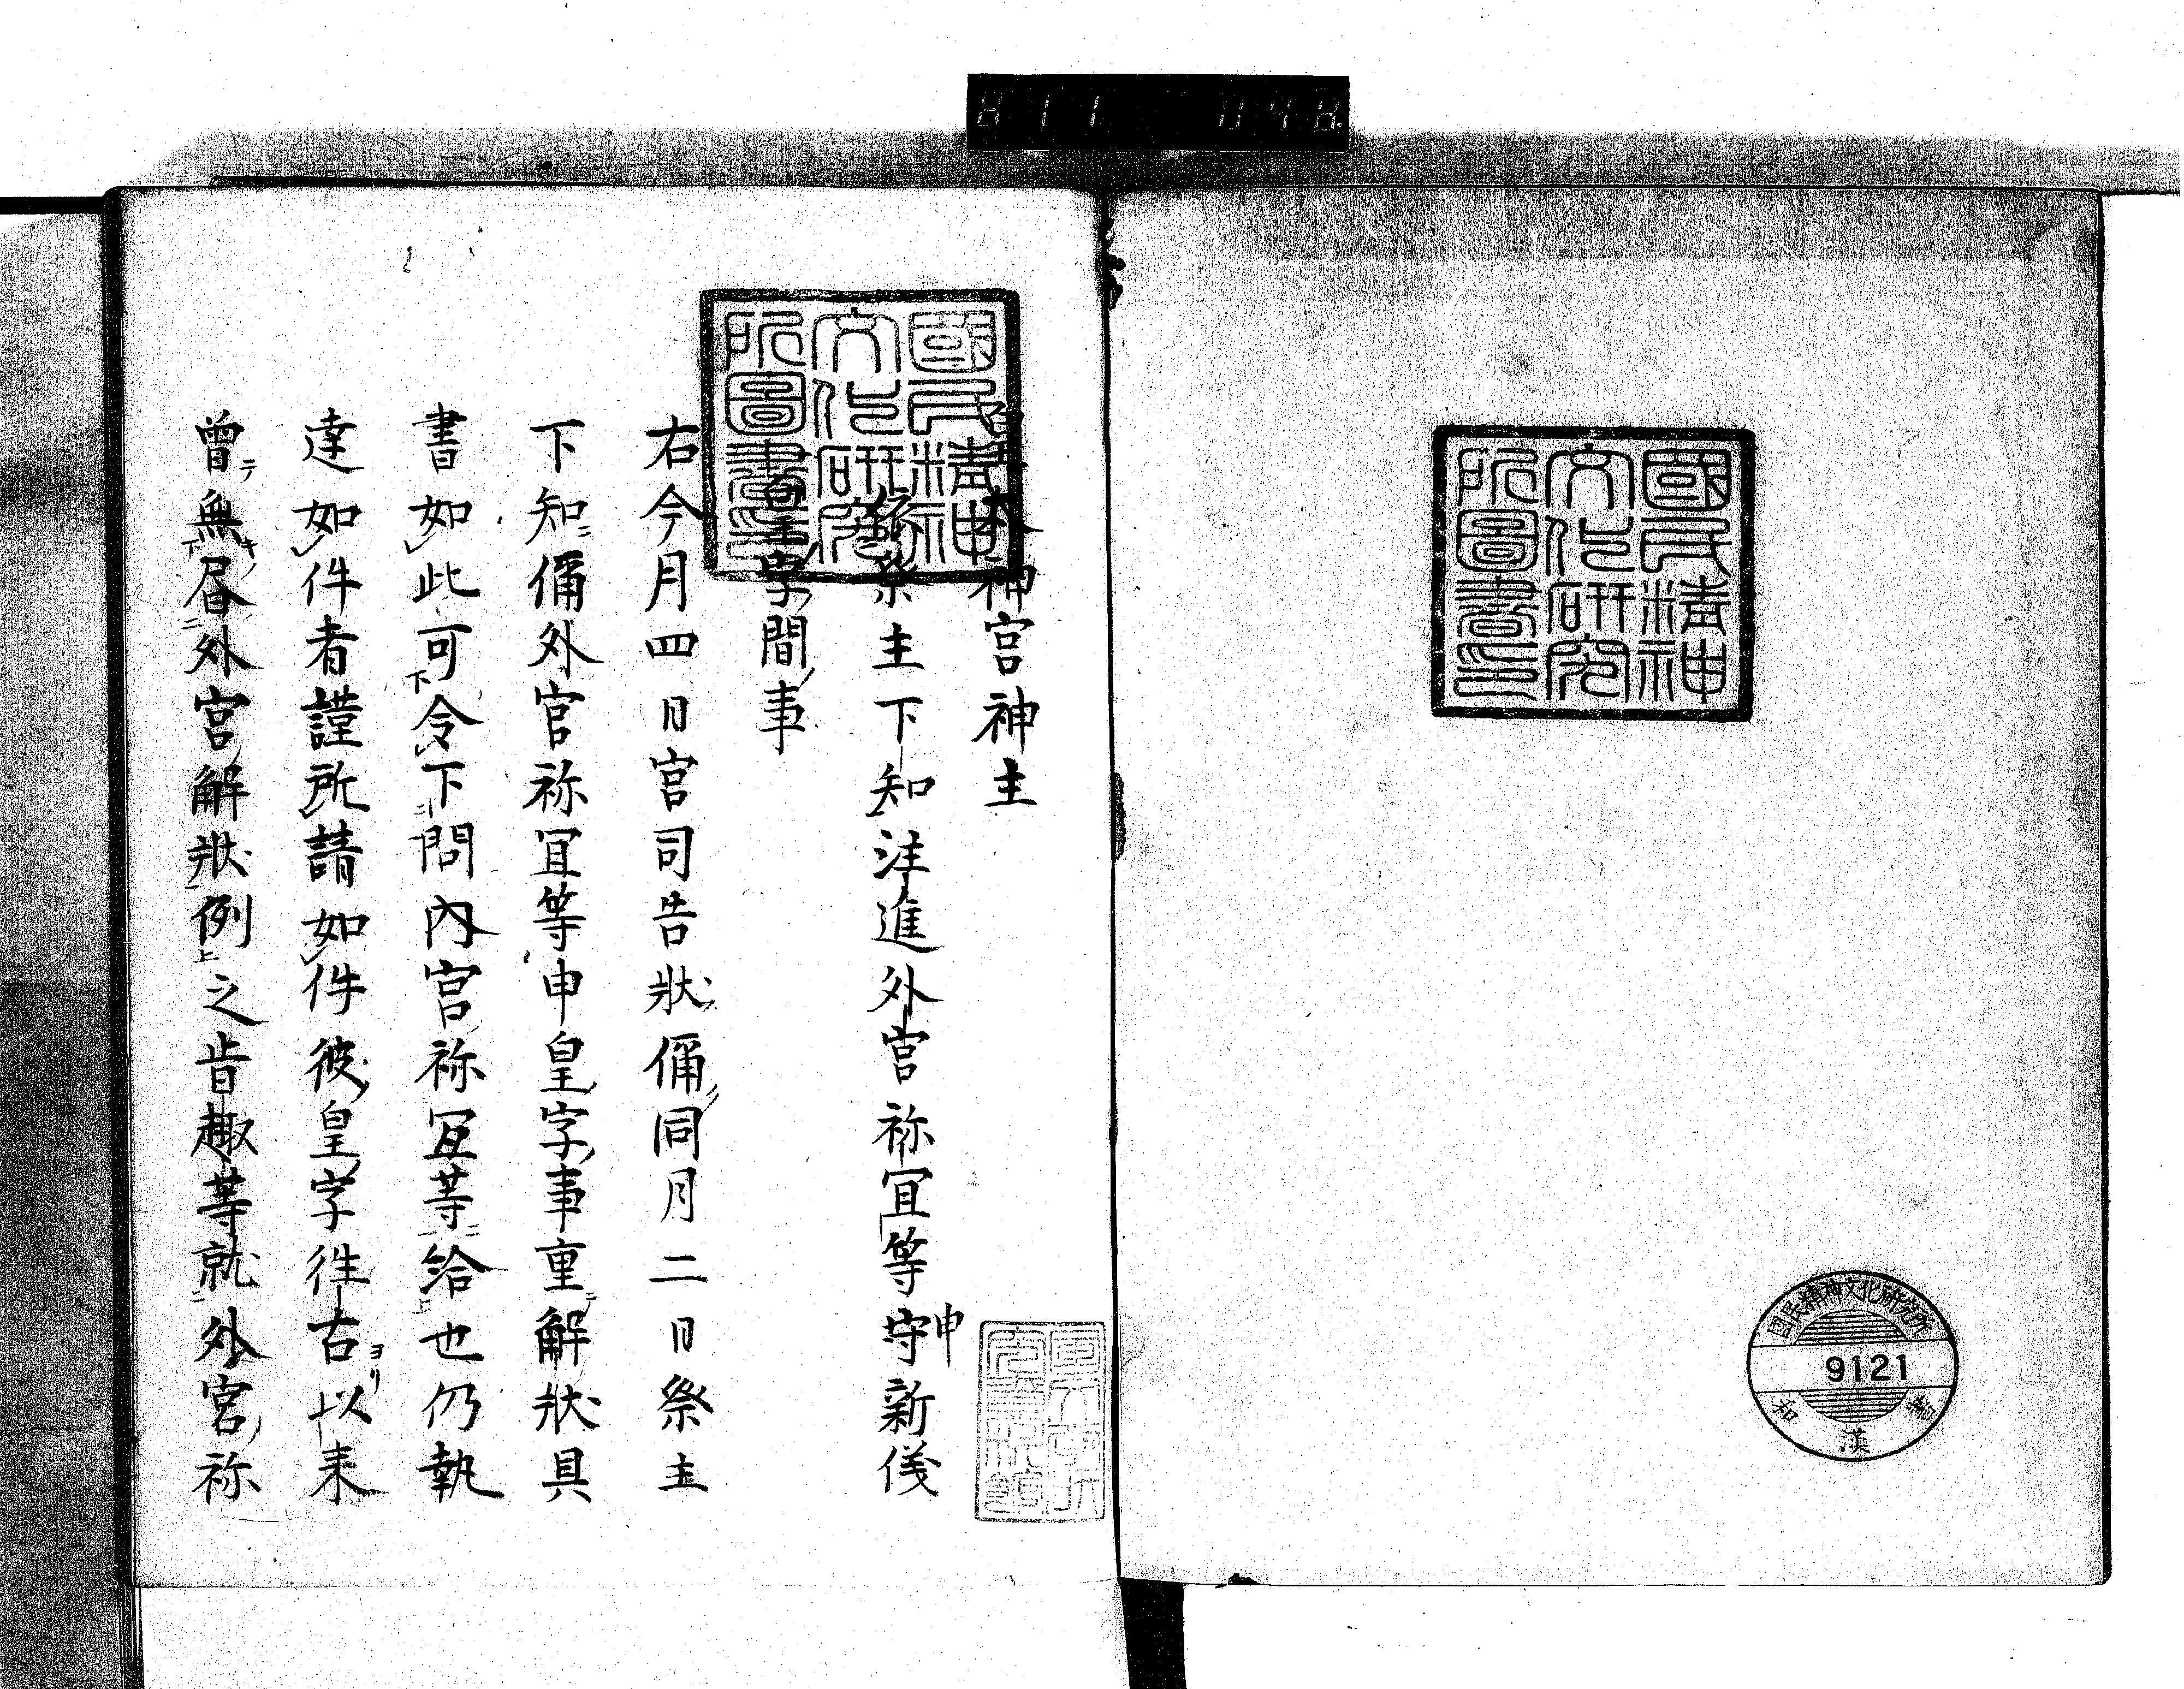 國民精神
文化研究
所圖書印
國民精神文化研究所
9121
和漢書
國民精神
文化研究
所圖書印
皇太神宮神主
依祭主下知注進外宮祢宜等守新儀
申
皇字間事
右今月四日宮司告狀偁同月二日祭主
下知偁外宮祢宜等申皇字事重解狀具
書如此可令下問內宮祢宜等給也仍執
達如件者謹所請如件彼皇字往古以来
曾無昼外宮解狀例之旨趣等就外宮祢